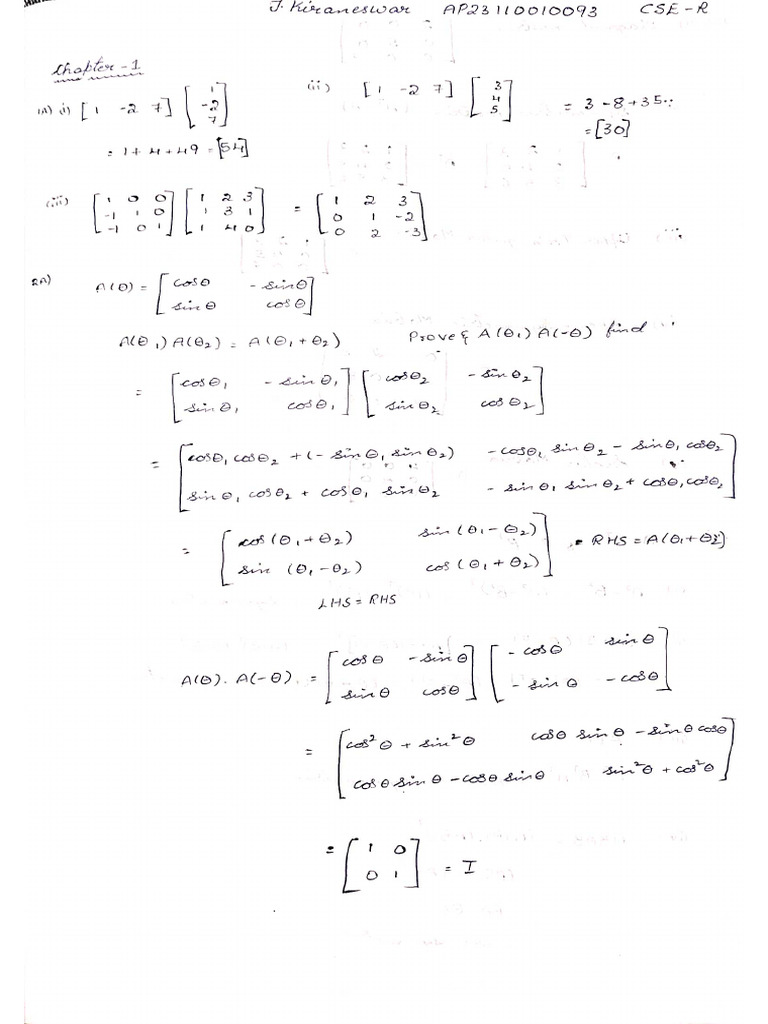 J. Kiraneswar AP23110010093 CSE-R
Chapter-1
1A) i) [1 -2 7] [1 -2 7] ii) [1 -2 7] [3 4 5] = 3 - 8 + 35
= 1 + 4 + 49 = [54] = [30]
iii) [1 0 0 [1 2 3 = [1 2 3
-1 1 0 1 3 1 0 1 -2
-1 0 1] 1 4 0] 0 2 -3]
2A) A(θ) = [cosθ - sinθ
sinθ cosθ]
A(θ1) A(θ2) = A(θ1 + θ2) Prove & A(θ1) A(-θ) find
= [cosθ1 - sinθ1 [cosθ2 - sinθ2
sinθ1 cosθ1] sinθ2 cosθ2]
= [cosθ1 cosθ2 + (- sinθ1 sinθ2) - cosθ1 sinθ2 - sinθ1 cosθ2
sinθ1 cosθ2 + cosθ1 sinθ2 - sinθ1 sinθ2 + cosθ1 cosθ2]
= [cos(θ1 + θ2) sin(θ1 - θ2)
sin (θ1 - θ2) cos(θ1 + θ2)] RHS = A(θ1 + θ2)
LHS = RHS
A(θ). A(-θ). = [cosθ - sinθ [- cosθ sinθ
sinθ cosθ] - sinθ - cosθ]
= [cos²θ + sin²θ cosθ sinθ - sinθ cosθ
cosθ sinθ - cosθ sinθ sin²θ + cos²θ]
= [1 0
0 1] = I